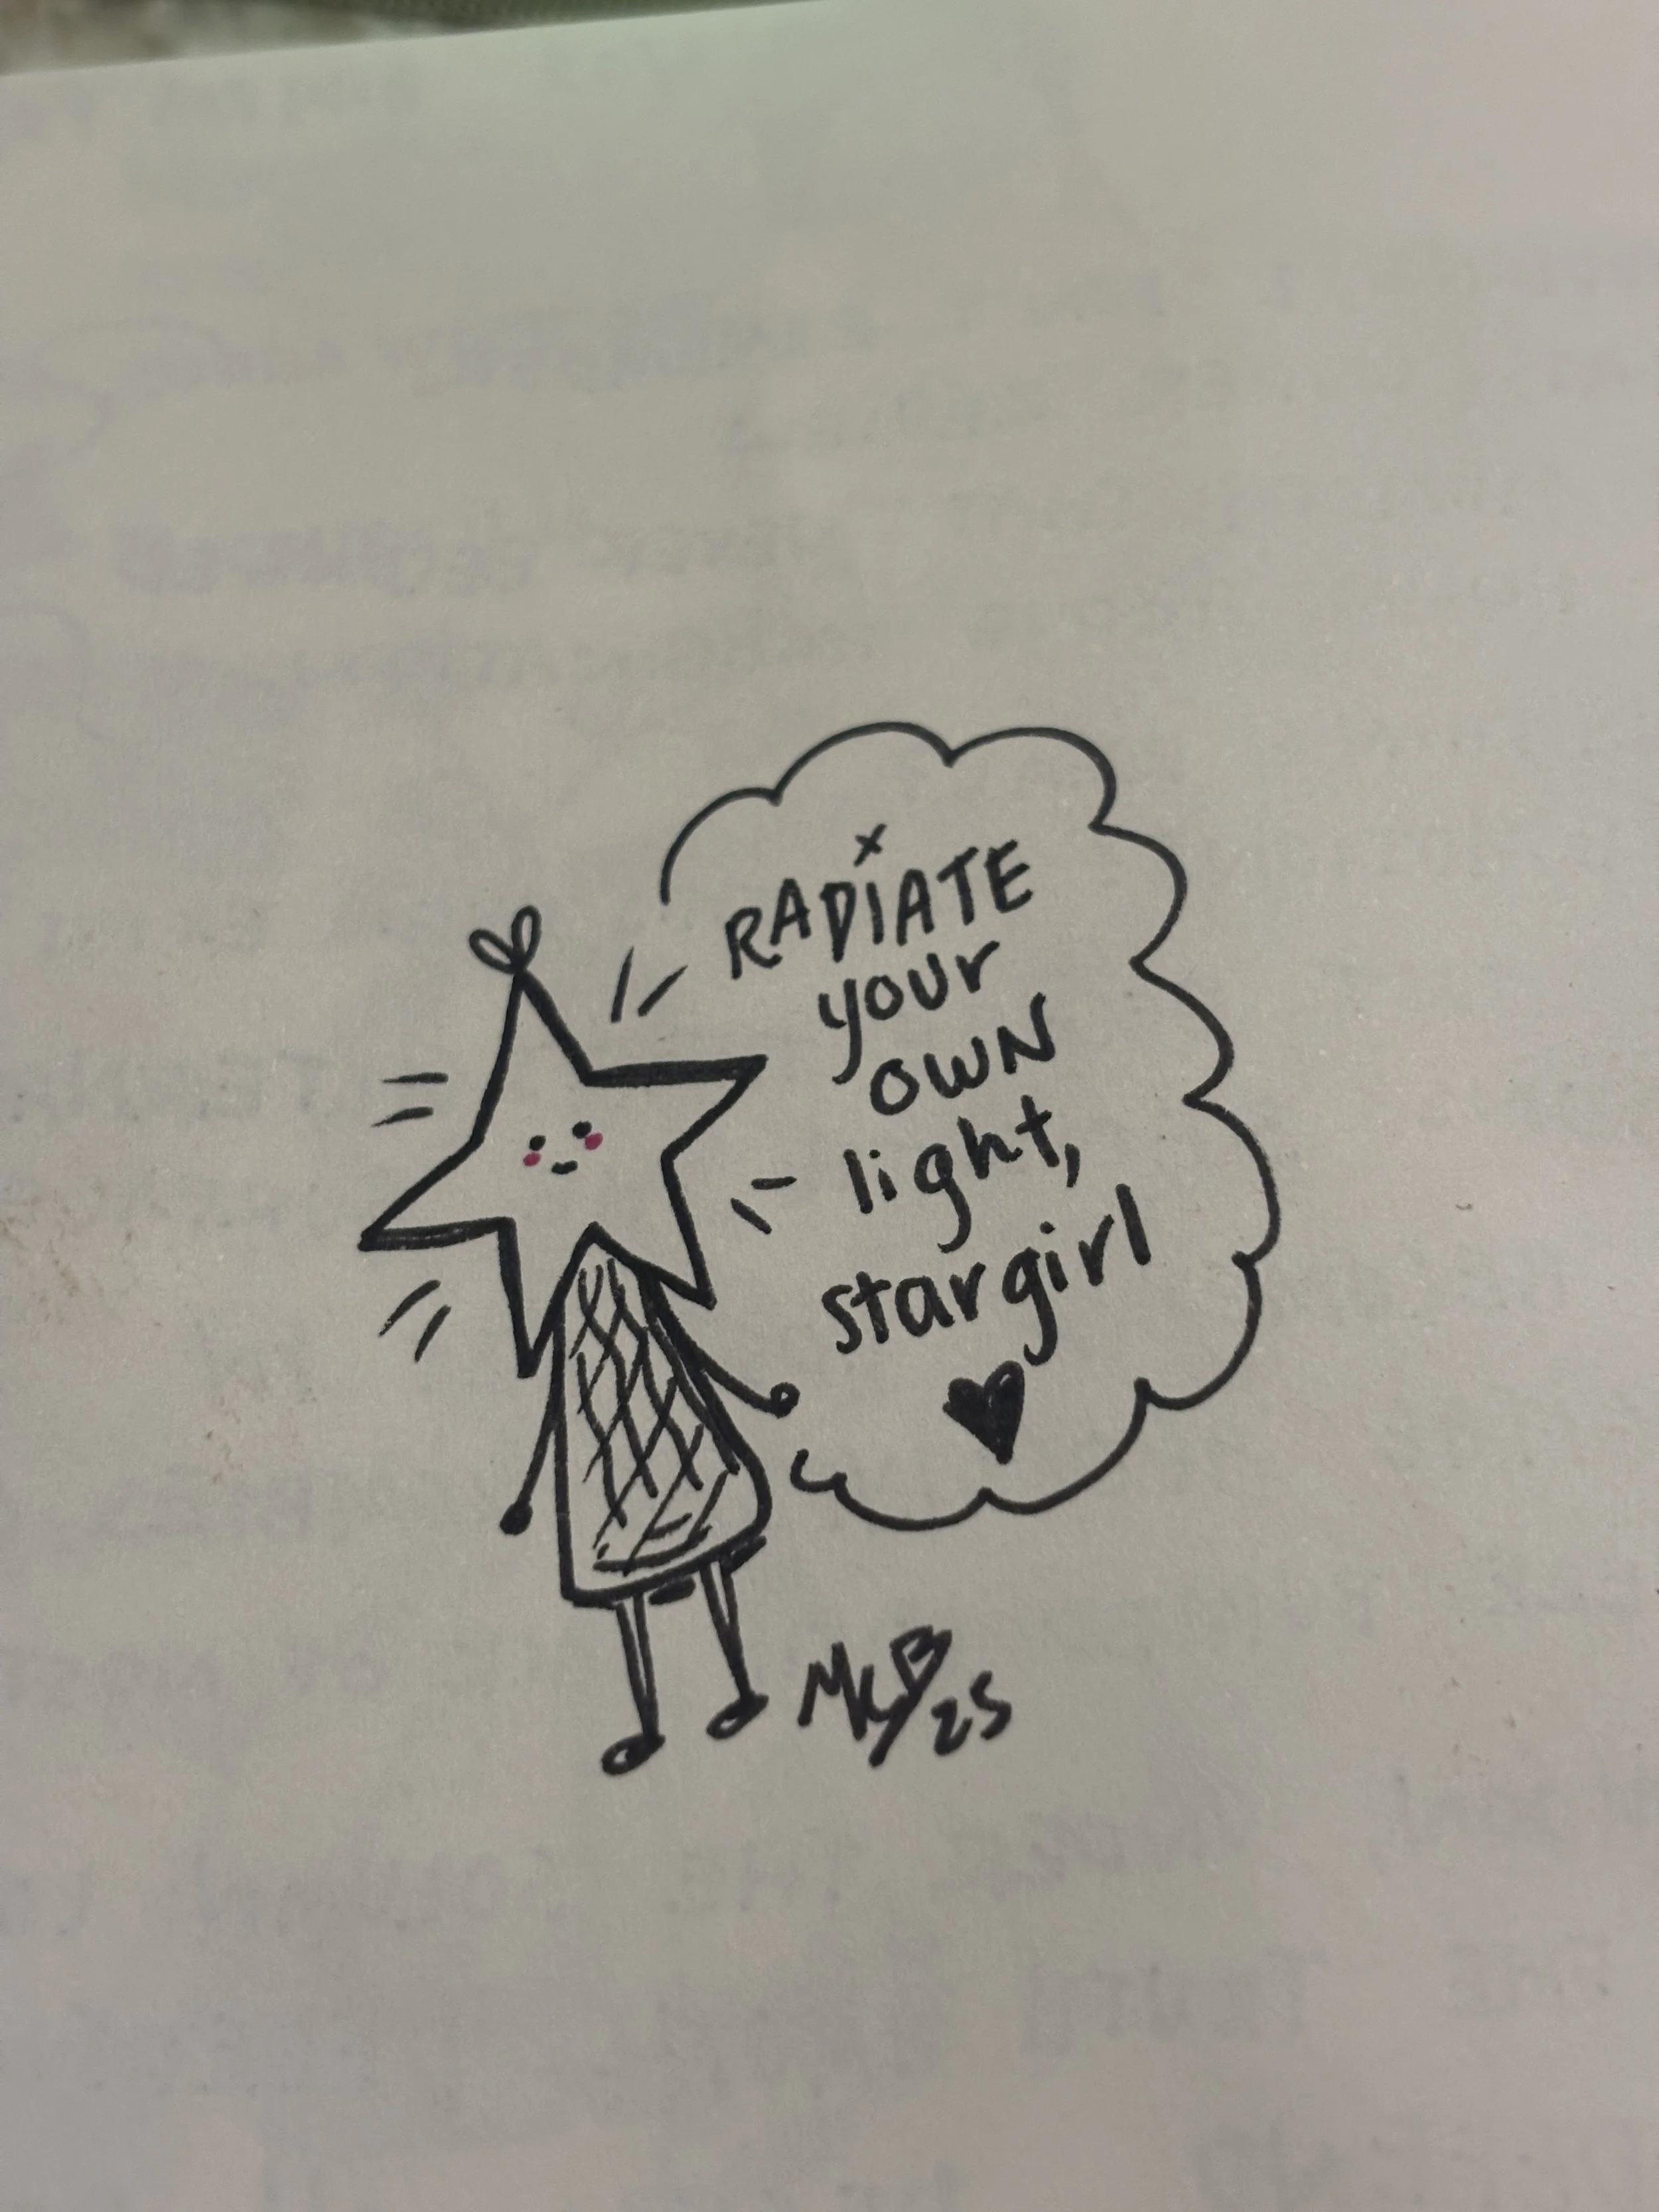 RADiATE
your
OWN
light,
stargirl
McB/25